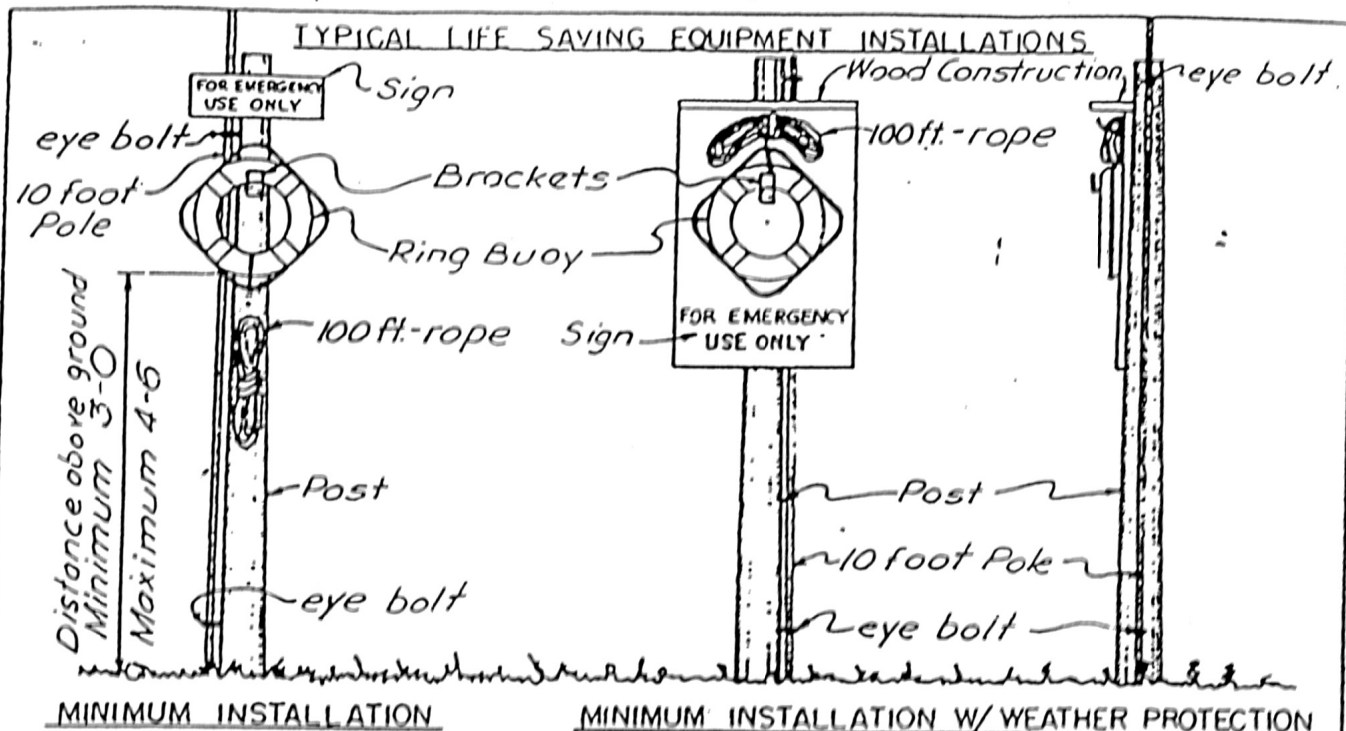 TYPICAL LIFE SAVING EQUIPMENT INSTALLATIONS
FOR EMERGENCY
USE ONLY
Sign
eye bolt
10 foot
Pole
Brackets
Ring Buoy
100 ft.-rope
Distance above ground
Minimum 3-0
Maximum 4-6
Post
eye bolt
MINIMUM INSTALLATION
Wood Construction
eye bolt
100 ft.-rope
FOR EMERGENCY
USE ONLY
Sign
Post
10 foot Pole
eye bolt
MINIMUM INSTALLATION W/ WEATHER PROTECTION